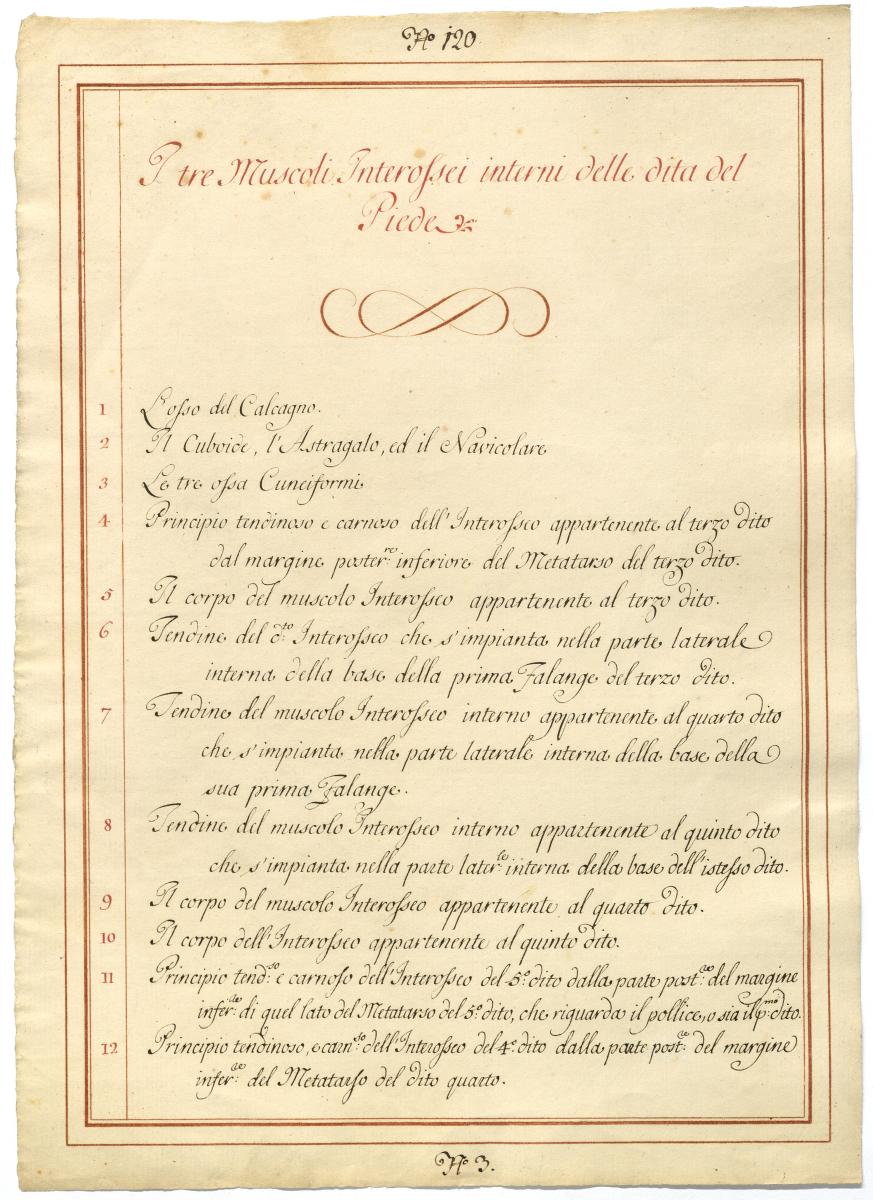 Nº 120
I tre Muscoli Interossei interni delle dita del
Piede
1 L'osso del Calcagno.
2 Il Cuboide, l'Astragalo, ed il Navicolare
3 Le tre ossa Cuneiformi
4 Principio tendinoso e carnoso dell'Interosseo appartenente al terzo dito
dal margine poster.re inferiore del Metatarso del terzo dito.
5 Il corpo del muscolo Interosseo appartenente al terzo dito.
6 Tendine del d.to Interosseo che s'impianta nella parte laterale
interna della base della prima Falange del terzo dito.
7 Tendine del muscolo Interosseo interno appartenente al quarto dito
che s'impianta nella parte laterale interna della base della
sua prima Falange.
8 Tendine del muscolo Interosseo interno appartenente al quinto dito
che s'impianta nella parte later.le interna della base dell'istesso dito.
9 Il corpo del muscolo Interosseo appartenente al quarto dito.
10 Il corpo dell'Interosseo appartenente al quinto dito.
11 Principio tend.so e carnoso dell'Interosseo del 5.º dito dalla parte post.re del margine
infer.re di quel lato del Metatarso del 5.º dito, che riguarda il pollice, o sia il p.mo dito.
12 Principio tendinoso, e carn.so dell'Interosseo del 4.º dito dalla parte post.re del margine
infer.re del Metatarso del dito quarto.
Nº 3.